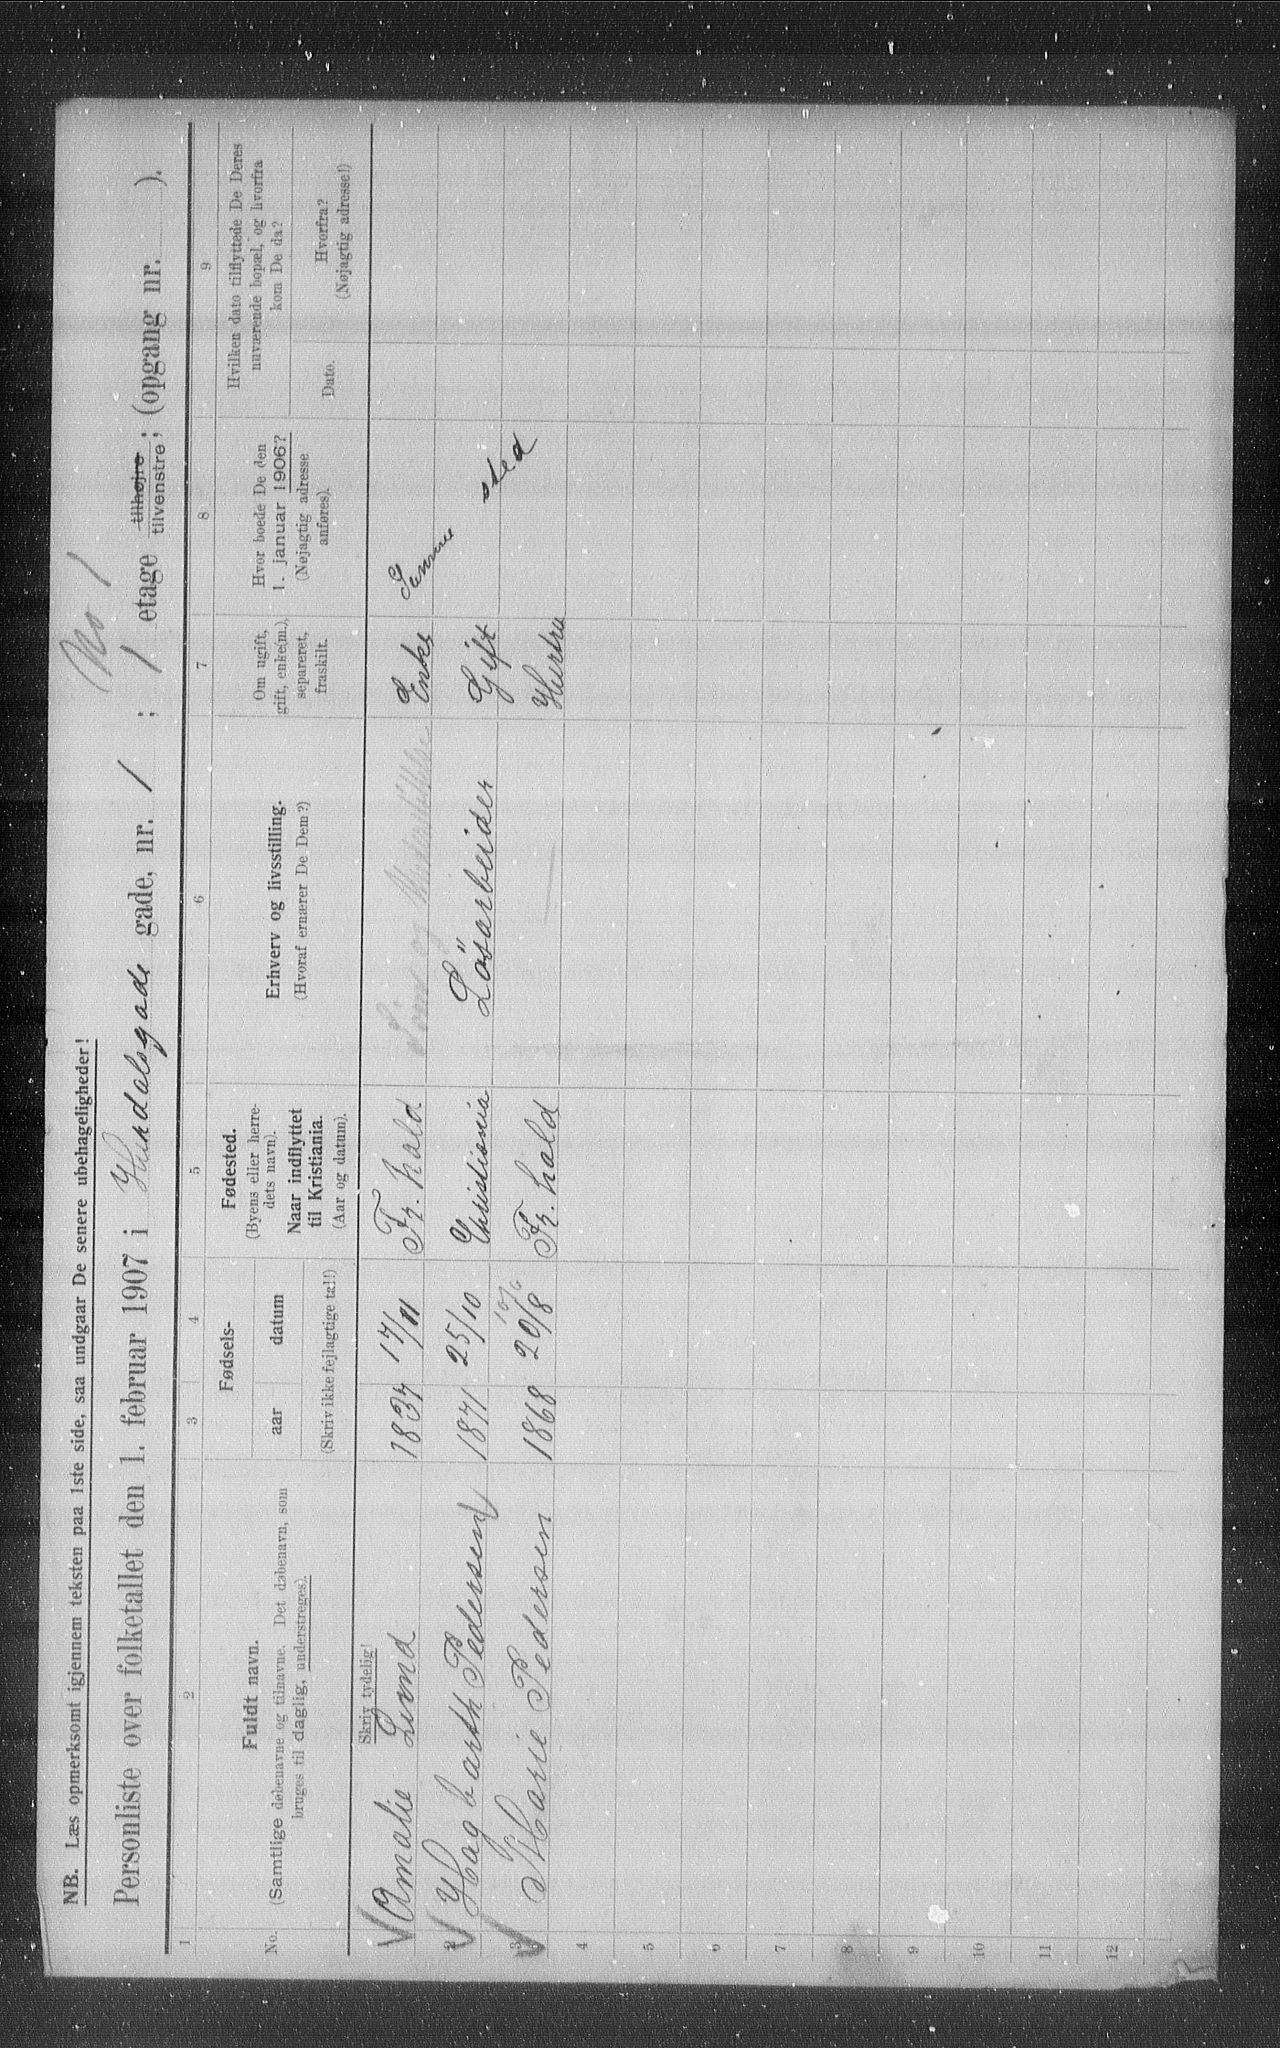 NB. Læs opmerksomt igjennem teksten paa 1ste side, saa undgaar De senere ubehageligheder!
No 1
Personliste over folketallet den 1. februar 1907 i Hundalsgade gade, nr. 1 ; 1 etage tilhøjre tilvenstre; (opgang nr. ).
1 2 3 4 5 6 7 8 9
No.
Fuldt navn.
(Samtlige døbenavne og tilnavne. Det døbenavn, som
bruges til daglig, understreges).
Fødsels-
aar datum
(Skriv ikke fejlagtige tal!)
Fødested.
(Byens eller herre-
dets navn).
Naar indflyttet
til Kristiania.
(Aar og datum).
Erhverv og livsstilling.
(Hvoraf ernærer De Dem?)
Om ugift,
gift, enke(m.),
separeret,
fraskilt.
Hvor boede De den
1. januar 1906?
(Nøjagtig adresse
anføres).
Hvilken dato tilflyttede De Deres
nuværende bopæl, og hvorfra
kom De da?
Dato.
Hvorfra?
(Nøjagtig adresse!)
Skriv tydelig!
Amalie Lund 1834 17/11 Fr. hald Enke Samme
2 Hagbarth Pedersen 1871 25/10 Christiania Lösarbeider Gift sted
3 Marie Pedersen 1868 20/8 Fr. hald Hustru
4
5
6
7
8
9
10
11
12